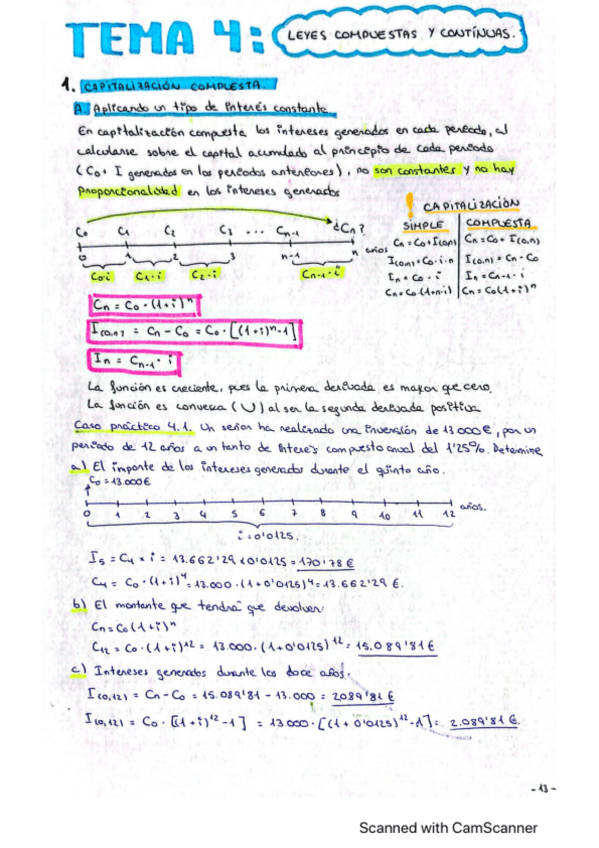 TEMA 4: LEYES COMPUESTAS Y CONTÍNUAS.
1. CAPITALIZACIÓN COMPUESTA.
A. Aplicando un tipo de interés constante.
En capitalización compuesta los intereses generados en cada periodo, al
calcularse sobre el capital acumulado al principio de cada periodo
(C0 + I generados en los periodos anteriores), no son constantes y no hay
proporcionalidad en los intereses generados
C0 C1 C2 C3 ... Cn-1 ¿Cn?
0 1 2 3 n-1 n años
C0·i C1·i C2·i Cn-1·i
! CAPITALIZACIÓN
SIMPLE COMPUESTA
Cn = C0 + I(0,n) Cn = C0 + I(0,n)
I(0,n) = C0·i·n I(0,n) = Cn - C0
In = C0·i In = Cn-1·i
Cn = C0·(1+n·i) Cn = C0(1+i)^n
Cn = C0·(1+i)^n
I(0,n) = Cn - C0 = C0·[(1+i)^n - 1]
In = Cn-1·i
La función es creciente, pues la primera derivada es mayor que cero.
La función es convexa (∪) al ser la segunda derivada positiva
Caso práctico 4.1. Un señor ha realizado una inversión de 13000€, por un
periodo de 12 años a un tanto de interés compuesto anual del 1'25%. Determine
a) El importe de los intereses generados durante el quinto año.
C0 = 13.000€
0 1 2 3 4 5 6 7 8 9 10 11 12 años.
i = 0'0125.
I5 = C4 × i = 13.662'29 × 0'0125 = 170'78€
C4 = C0·(1+i)^4 = 13.000·(1+0'0125)^4 = 13.662'29€.
b) El montante que tendrá que devolver
Cn = C0(1+i)^n
C12 = C0·(1+i)^12 = 13.000·(1+0'0125)^12 = 15.089'81€
c) Intereses generados durante los doce años.
I(0,12) = Cn - C0 = 15.089'81 - 13.000 = 2089'81€
I(0,12) = C0·[(1+i)^12 - 1] = 13000·[(1+0'0125)^12 - 1] = 2.089'81€.
- 13 -
Scanned with CamScanner